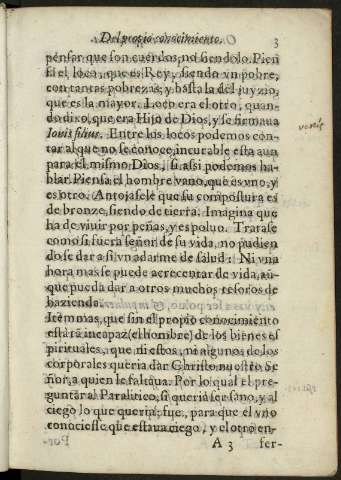 Del propio conocimiento. 3
pensar que son cuerdos, no siendolo. Pien
sa el loco, que es Rey, siendo vn pobre,
con tantas pobrezas, y basta la del juyzio,
que es la mayor. Loco era el otro, quan-
do dixo, que era Hijo de Dios, y se firmaua
Iouis filius. Entre los locos podemos con-
tar al que no se conoce, incurable esta aun
para el mismo Dios, si assi podemos ha-
blar. Piensa el hombre vano, que es vno, y
es otro. Antojasele que su compostura es
de bronze, siendo de tierra. Imagina que
ha de viuir por peñas, y es poluo. Tratase
como si fuera señor de su vida, no pudien
dose dar a si vn adarme de salud: Ni vna
hora mas se puede acrecentar de vida, aũ
que pueda dar a otros muchos tesoros de
hazienda.
Item mas, que sin el propio conocimiento
estarà incapaz (el hombre) de los bienes es
pirituales, que ni estos, ni algunos de los
corporales queria dar Christo nuestro Se
ñor, a quien le faltaua. Por lo qual el pre-
guntar al Paralitico, si queria ser sano, y al
ciego lo que queria, fue, para que el vno
conociesse que estaua ciego, y el otro en-
A 3 fer-